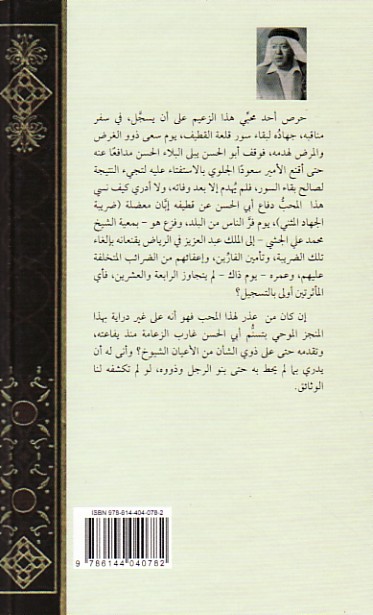 حرص أحد محبّي هذا الزعيم على أن يسجّل، في سفر
مناقبه، جهادَه لبقاء سور قلعة القطيف، يوم سعى ذوو الغرض
والمرض لهدمه، فوقف أبو الحسن يبلى البلاء الحسن مدافعًا عنه
حتى أقنع الأمير سعودًا الجلوي بالاستفتاء عليه لتجيء النتيجة
لصالح بقاء السور، فلم يُهدم إلا بعد وفاته، ولا أدري كيف نسي
هذا المحبُّ دفاع أبي الحسن عن قطيفه إبّان معضلة (ضريبة
الجهاد المثني)، يوم فرَّ الناس من البلد، وفزع هو – بمعية الشيخ
محمد علي الجشي – إلى الملك عبد العزيز في الرياض يقنعانه بإلغاء
تلك الضريبة، وتأمين الفارِّين، وإعفائهم من الضرائب المتخلفة
عليهم، وعمره – يوم ذاك – لم يتجاوز الرابعة والعشرين، فأي
المأثرتين أولى بالتسجيل؟
إن كان من عذر لهذا المحب فهو أنه على غير دراية بهذا
المنجز الموحي بتسنُّم أبي الحسن غارب الزعامة منذ يفاعته،
وتقدمه حتى على ذوي الشأن من الأعيان الشيوخ؟ وأنى له أن
يدري بما لم يحط به حتى بنو الرجل وذووه، لو لم تكشفه لنا
الوثائق.
ISBN 978-614-404-078-2
9 786144 040782